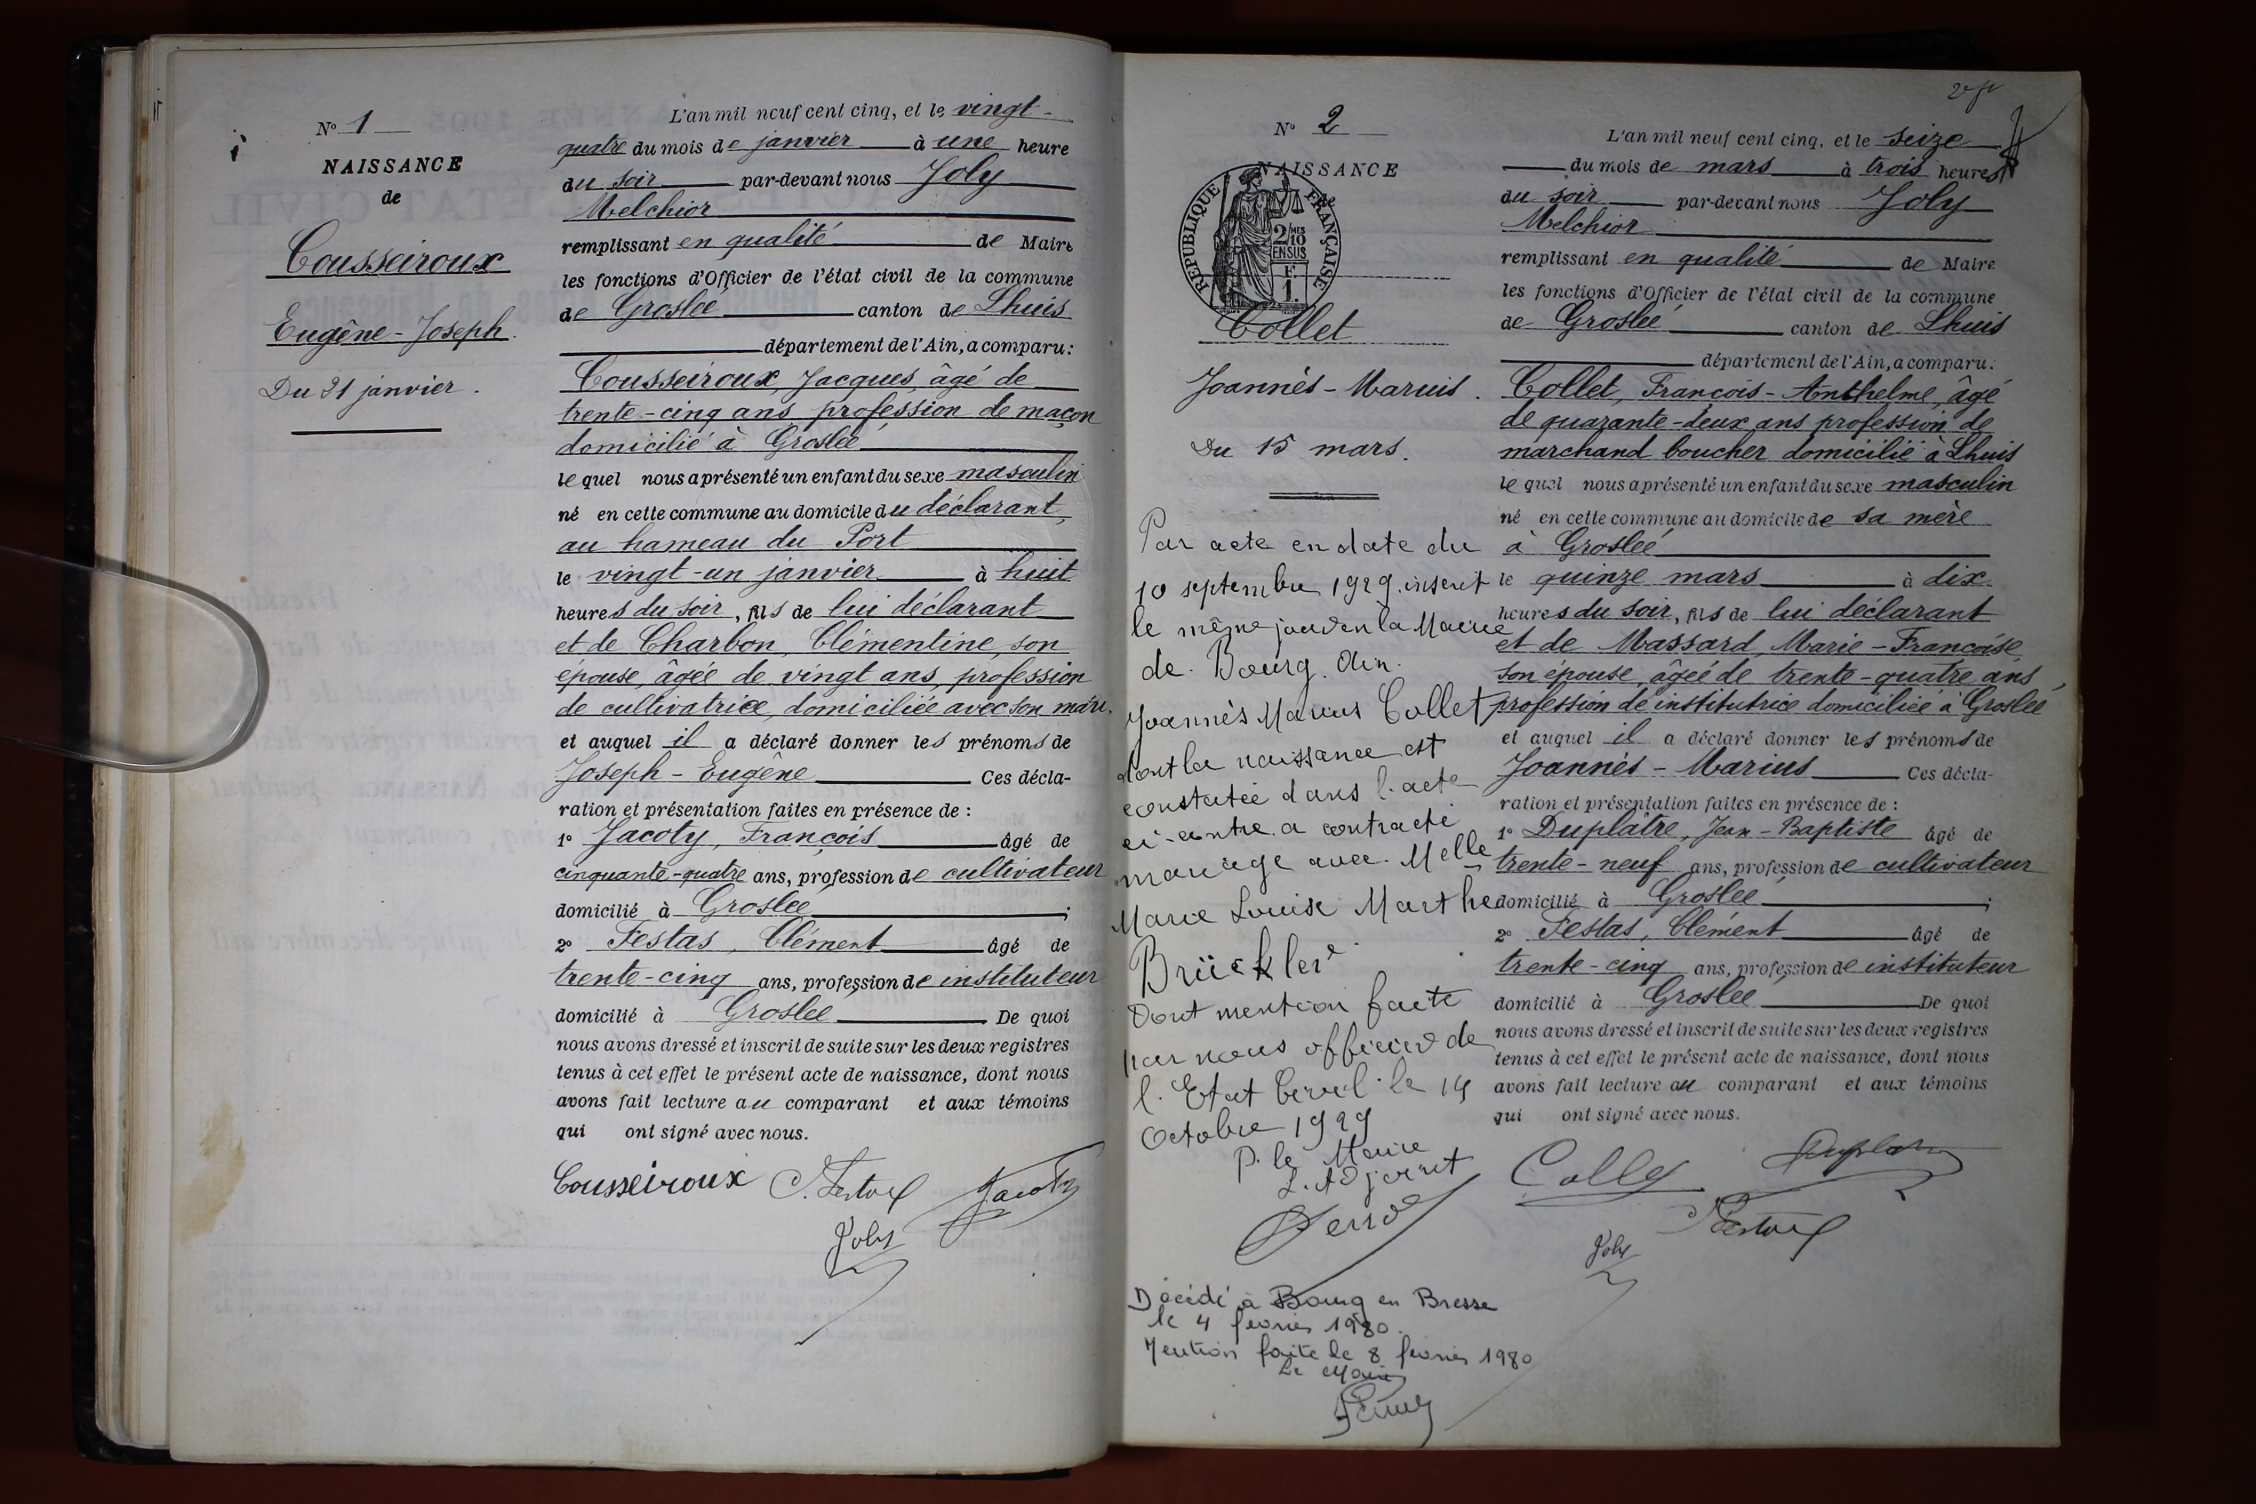 N° 1
NAISSANCE
de
Cousseiroux
Eugène-Joseph.
Du 21 janvier.
L'an mil neuf cent cinq, et le vingt-
quatre du mois de janvier à une heure
du soir par-devant nous Joly
Melchior
remplissant en qualité de Maire
les fonctions d'Officier de l'état civil de la commune
de Groslée canton de Lhuis
département de l'Ain, a comparu:
Cousseiroux, Jacques, âgé de
trente-cinq ans profession de maçon
domicilié à Groslée
le quel nous a présenté un enfant du sexe masculin
né en cette commune au domicile du déclarant,
au hameau du Port
le vingt-un janvier à huit
heures du soir, fils de lui déclarant
et de Charbon, Clémentine, son
épouse, âgée de vingt ans, profession
de cultivatrice, domiciliée avec son mari,
et auquel il a déclaré donner les prénoms de
Joseph-Eugène Ces décla-
ration et présentation faites en présence de :
1° Jacoty, François âgé de
cinquante-quatre ans, profession de cultivateur
domicilié à Groslée ;
2° Festas, Clément âgé de
trente-cinq ans, profession de instituteur
domicilié à Groslée De quoi
nous avons dressé et inscrit de suite sur les deux registres
tenus à cet effet le présent acte de naissance, dont nous
avons fait lecture au comparant et aux témoins
qui ont signé avec nous.
Cousseiroux C. Festas Jacoty
Joly
N° 2
NAISSANCE
de
REPUBLIQUE FRANÇAISE
2/10MES
EN SUS
F.
1.
Collet
Joannès-Marius.
Du 15 mars.
Par acte en date du
10 septembre 1929 inscrit
le même jour en la Mairie
de Bourg. Ain.
Joannès Marius Collet
dont la naissance est
constatée dans l'acte
ci-contre a contracté
mariage avec Melle
Marie Louise Marthe
Brückler
Dont mention faite
par nous officier de
l'Etat Civil le 14
Octobre 1929
P. le Maire
L'Adjoint
Décédé à Bourg en Bresse
le 4 février 1980.
Mention faite le 8 février 1980
Le Maire
L'an mil neuf cent cinq, et le seize
du mois de mars à trois heures
du soir par-devant nous Joly
Melchior
remplissant en qualité de Maire
les fonctions d'Officier de l'état civil de la commune
de Groslée canton de Lhuis
département de l'Ain, a comparu:
Collet, François-Anthelme, âgé
de quarante-deux ans profession de
marchand boucher domicilié à Lhuis
le quel nous a présenté un enfant du sexe masculin
né en cette commune au domicile de sa mère
à Groslée
le quinze mars à dix
heures du soir, fils de lui déclarant
et de Massard, Marie-Françoise
son épouse, âgée de trente-quatre ans,
profession de institutrice domiciliée à Groslée
et auquel il a déclaré donner les prénoms de
Joannès-Marius Ces décla-
ration et présentation faites en présence de :
1° Duplâtre, Jean-Baptiste âgé de
trente-neuf ans, profession de cultivateur
domicilié à Groslée ;
2° Festas, Clément âgé de
trente-cinq ans, profession de instituteur
domicilié à Groslée De quoi
nous avons dressé et inscrit de suite sur les deux registres
tenus à cet effet le présent acte de naissance, dont nous
avons fait lecture au comparant et aux témoins
qui ont signé avec nous.
Festas
Joly